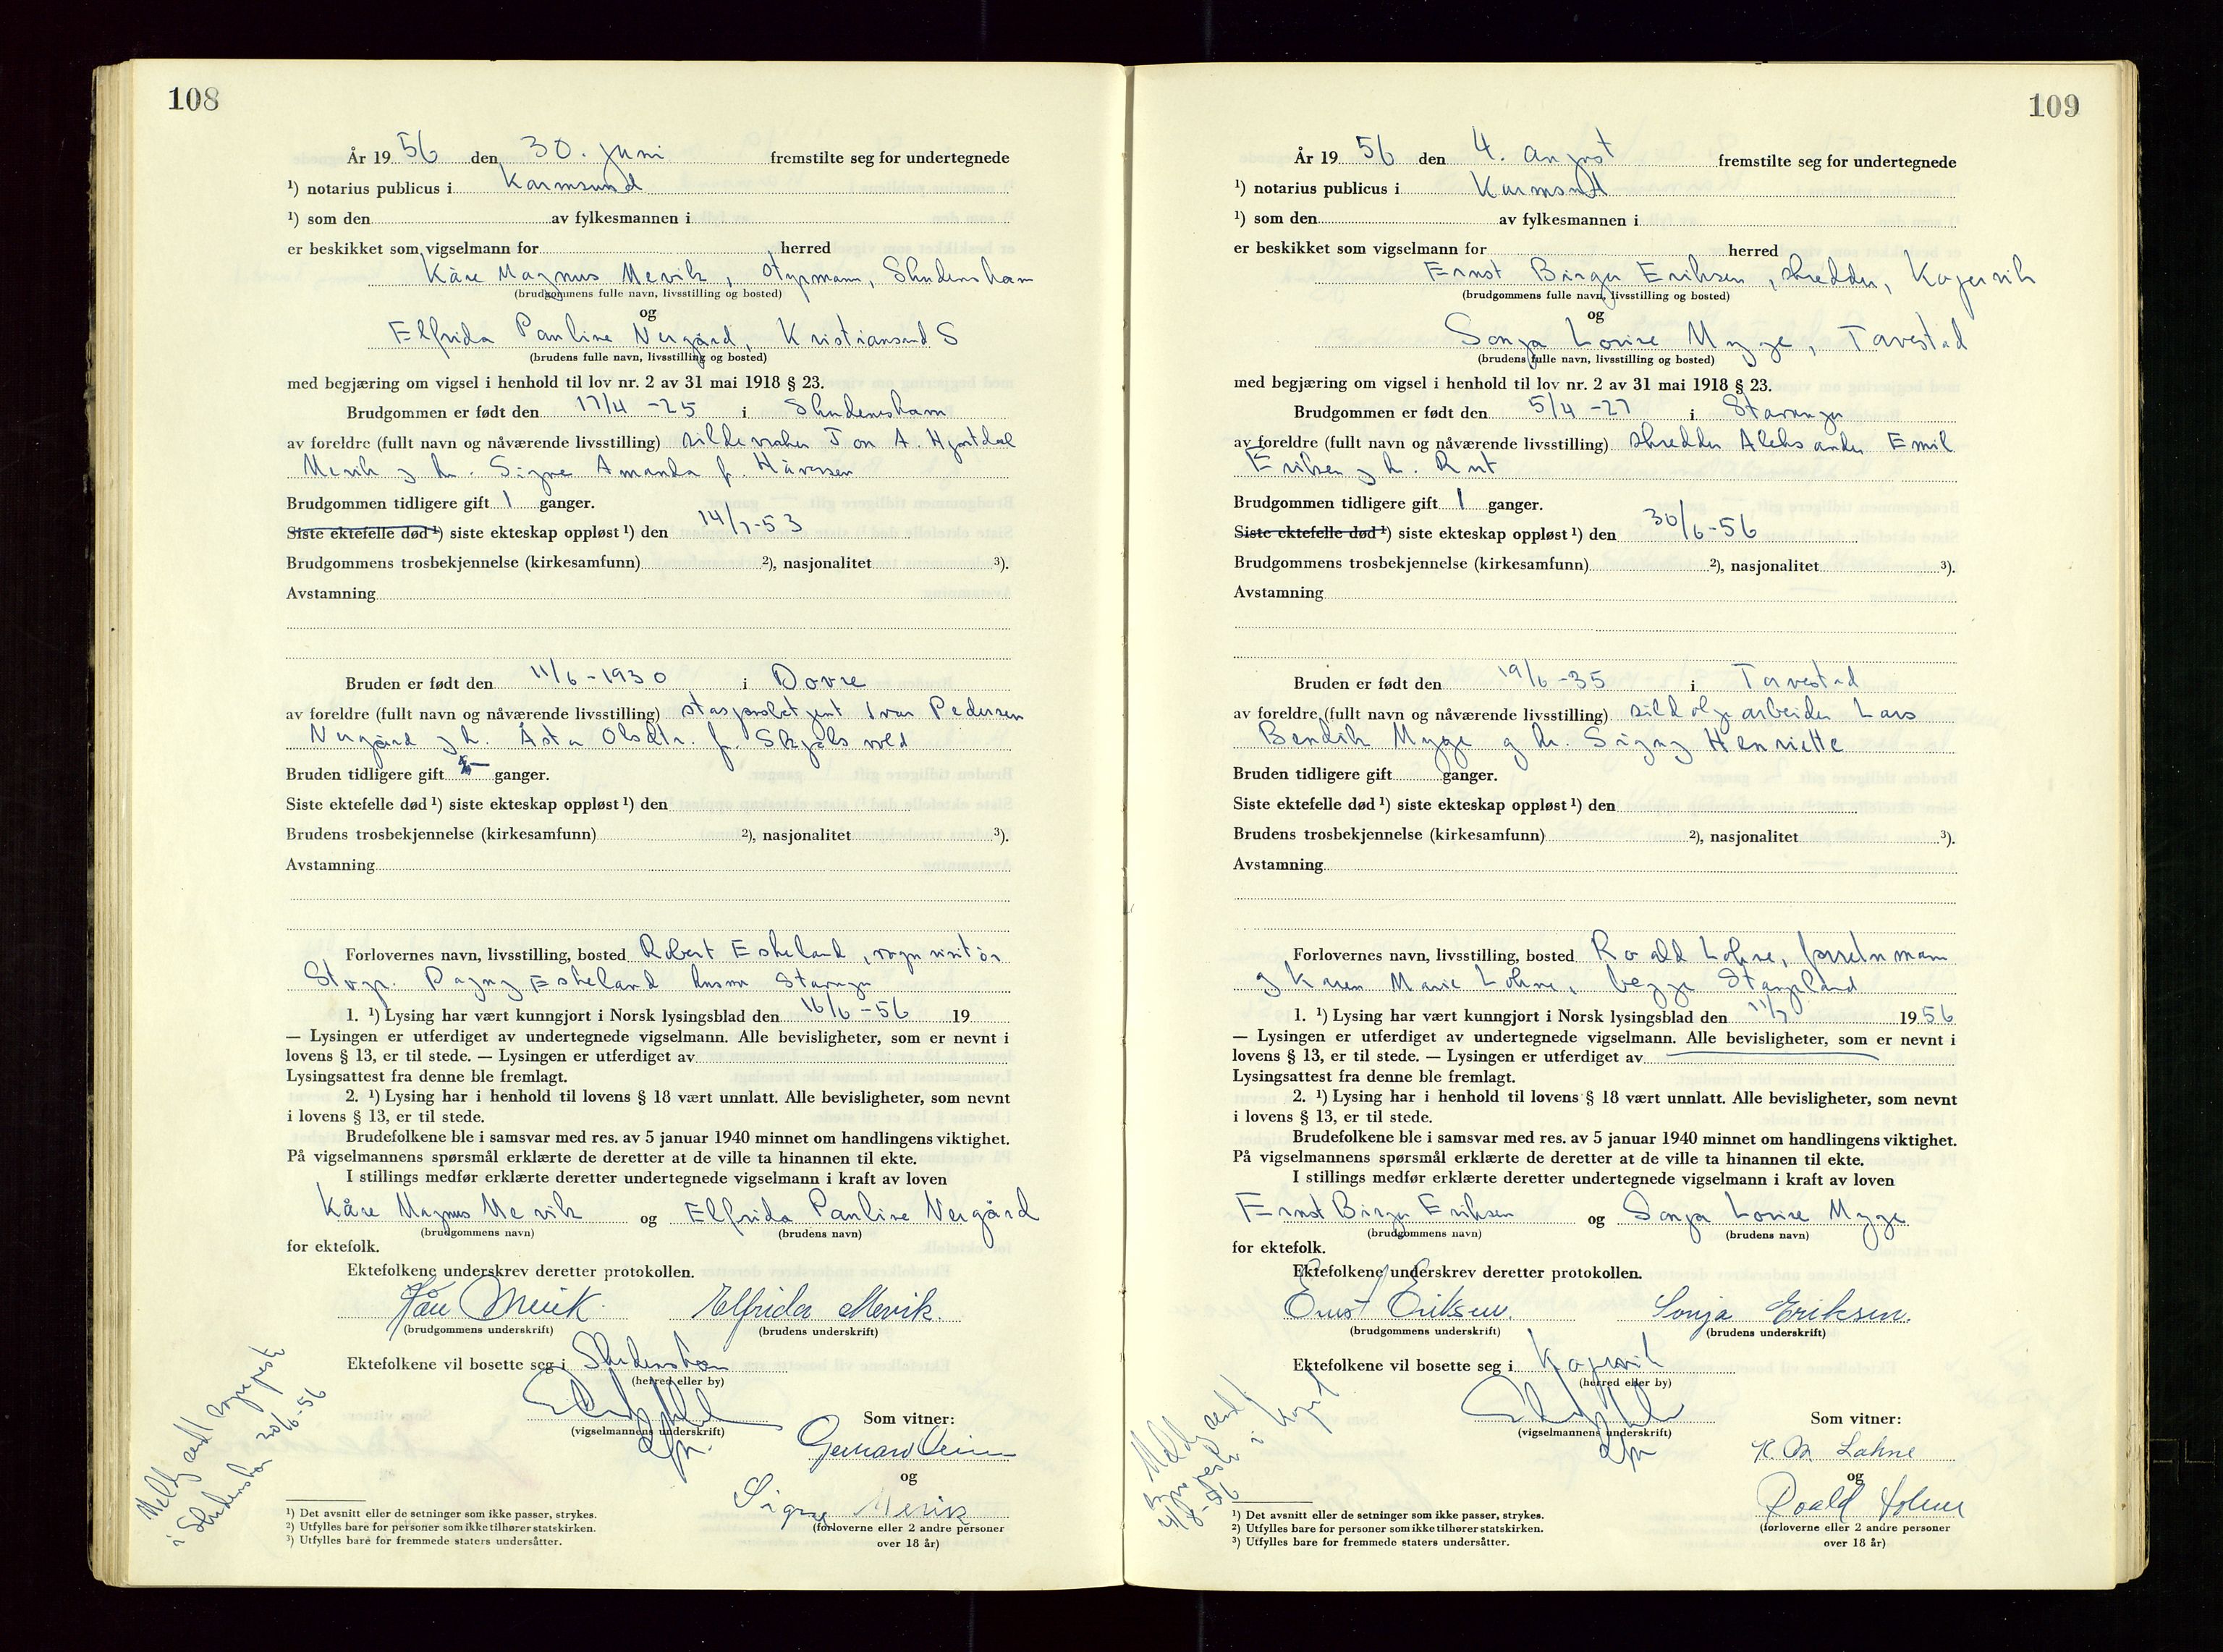 108
År 19 56 den 30. juni fremstilte seg for undertegnede
¹) notarius publicus i Karmsund
¹) som den av fylkesmannen i
er beskikket som vigselmann for herred
Kåre Magnus Mevik, styrmann, Skudeneshavn
(brudgommens fulle navn, livsstilling og bosted)
og
Elfrida Pauline Nergård, Kristiansand S
(brudens fulle navn, livsstilling og bosted)
med begjæring om vigsel i henhold til lov nr. 2 av 31 mai 1918 § 23.
Brudgommen er født den 17/4 -25 i Skudeneshavn
av foreldre (fullt navn og nåværende livsstilling) sildevraker Jon A. Hjortdal
Mevik og h. Signe Amanda f.
Brudgommen tidligere gift 1 ganger.
Siste ektefelle død ¹) siste ekteskap oppløst ¹) den 14/7-53
Brudgommens trosbekjennelse (kirkesamfunn) ²), nasjonalitet ³).
Avstamning
Bruden er født den 11/6 - 1930 i Dovre
av foreldre (fullt navn og nåværende livsstilling) Ivar Pedersen
Nergård og h. Åsta Olsdtr. f.
Bruden tidligere gift ganger.
Siste ektefelle død ¹) siste ekteskap oppløst ¹) den
Brudens trosbekjennelse (kirkesamfunn) ²), nasjonalitet ³).
Avstamning
Forlovernes navn, livsstilling, bosted Robert Eskeland, vognvisitør
Stvgr. Dagny Eskeland husmor Stavanger
1. ¹) Lysing har vært kunngjort i Norsk lysingsblad den 16/6 -56 19
— Lysingen er utferdiget av undertegnede vigselmann. Alle bevisligheter, som er nevnt i
lovens § 13, er til stede. — Lysingen er utferdiget av
Lysingsattest fra denne ble fremlagt.
2. ¹) Lysing har i henhold til lovens § 18 vært unnlatt. Alle bevisligheter, som nevnt
i lovens § 13, er til stede.
Brudefolkene ble i samsvar med res. av 5 januar 1940 minnet om handlingens viktighet.
På vigselmannens spørsmål erklærte de deretter at de ville ta hinannen til ekte.
I stillings medfør erklærte deretter undertegnede vigselmann i kraft av loven
Kåre Magnus Mevik og Elfrida Pauline Nergård
(brudgommens navn) (brudens navn)
for ektefolk.
Ektefolkene underskrev deretter protokollen.
Kåre Mevik Elfrida Mevik.
(brudgommens underskrift) (brudens underskrift)
Ektefolkene vil bosette seg i Skudeneshavn
(herred eller by)
(vigselmannens underskrift)
Som vitner:
og
Signe Mevik
(forloverne eller 2 andre personer
over 18 år)
Meld. sendt
i Skudeneshavn 30/6-56
¹) Det avsnitt eller de setninger som ikke passer, strykes.
²) Utfylles bare for personer som ikke tilhører statskirken.
³) Utfylles bare for fremmede staters undersåtter.
109
År 19 56 den 4. august fremstilte seg for undertegnede
¹) notarius publicus i Karmsund
¹) som den av fylkesmannen i
er beskikket som vigselmann for herred
Ernst Birger Eriksen, skredder, Kopervik
(brudgommens fulle navn, livsstilling og bosted)
og
Sonja Lovise Mygge, Torvestad
(brudens fulle navn, livsstilling og bosted)
med begjæring om vigsel i henhold til lov nr. 2 av 31 mai 1918 § 23.
Brudgommen er født den 5/4 -27 i Stavanger
av foreldre (fullt navn og nåværende livsstilling) skredder Aleksander Emil
Eriksen og h. Rut
Brudgommen tidligere gift 1 ganger.
Siste ektefelle død ¹) siste ekteskap oppløst ¹) den 30/6-56
Brudgommens trosbekjennelse (kirkesamfunn) ²), nasjonalitet ³).
Avstamning
Bruden er født den 19/6 -35 i Torvestad
av foreldre (fullt navn og nåværende livsstilling) sildoljearbeider Lars
Bendik Mygge og h. Signy Henriette
Bruden tidligere gift ganger.
Siste ektefelle død ¹) siste ekteskap oppløst ¹) den
Brudens trosbekjennelse (kirkesamfunn) ²), nasjonalitet ³).
Avstamning
Forlovernes navn, livsstilling, bosted Roald Lohne,
og Karen Marie Lohne, begge Stangeland
1. ¹) Lysing har vært kunngjort i Norsk lysingsblad den 11/7 1956
— Lysingen er utferdiget av undertegnede vigselmann. Alle bevisligheter, som er nevnt i
lovens § 13, er til stede. — Lysingen er utferdiget av
Lysingsattest fra denne ble fremlagt.
2. ¹) Lysing har i henhold til lovens § 18 vært unnlatt. Alle bevisligheter, som nevnt
i lovens § 13, er til stede.
Brudefolkene ble i samsvar med res. av 5 januar 1940 minnet om handlingens viktighet.
På vigselmannens spørsmål erklærte de deretter at de ville ta hinannen til ekte.
I stillings medfør erklærte deretter undertegnede vigselmann i kraft av loven
Ernst Birger Eriksen og Sonja Lovise Mygge
(brudgommens navn) (brudens navn)
for ektefolk.
Ektefolkene underskrev deretter protokollen.
Ernst Eriksen. Sonja Eriksen.
(brudgommens underskrift) (brudens underskrift)
Ektefolkene vil bosette seg i Kopervik
(herred eller by)
(vigselmannens underskrift)
Som vitner:
K. M. Lohne
og
Roald Lohne
(forloverne eller 2 andre personer
over 18 år)
Meld. sendt
¹) Det avsnitt eller de setninger som ikke passer, strykes.
²) Utfylles bare for personer som ikke tilhører statskirken.
³) Utfylles bare for fremmede staters undersåtter.